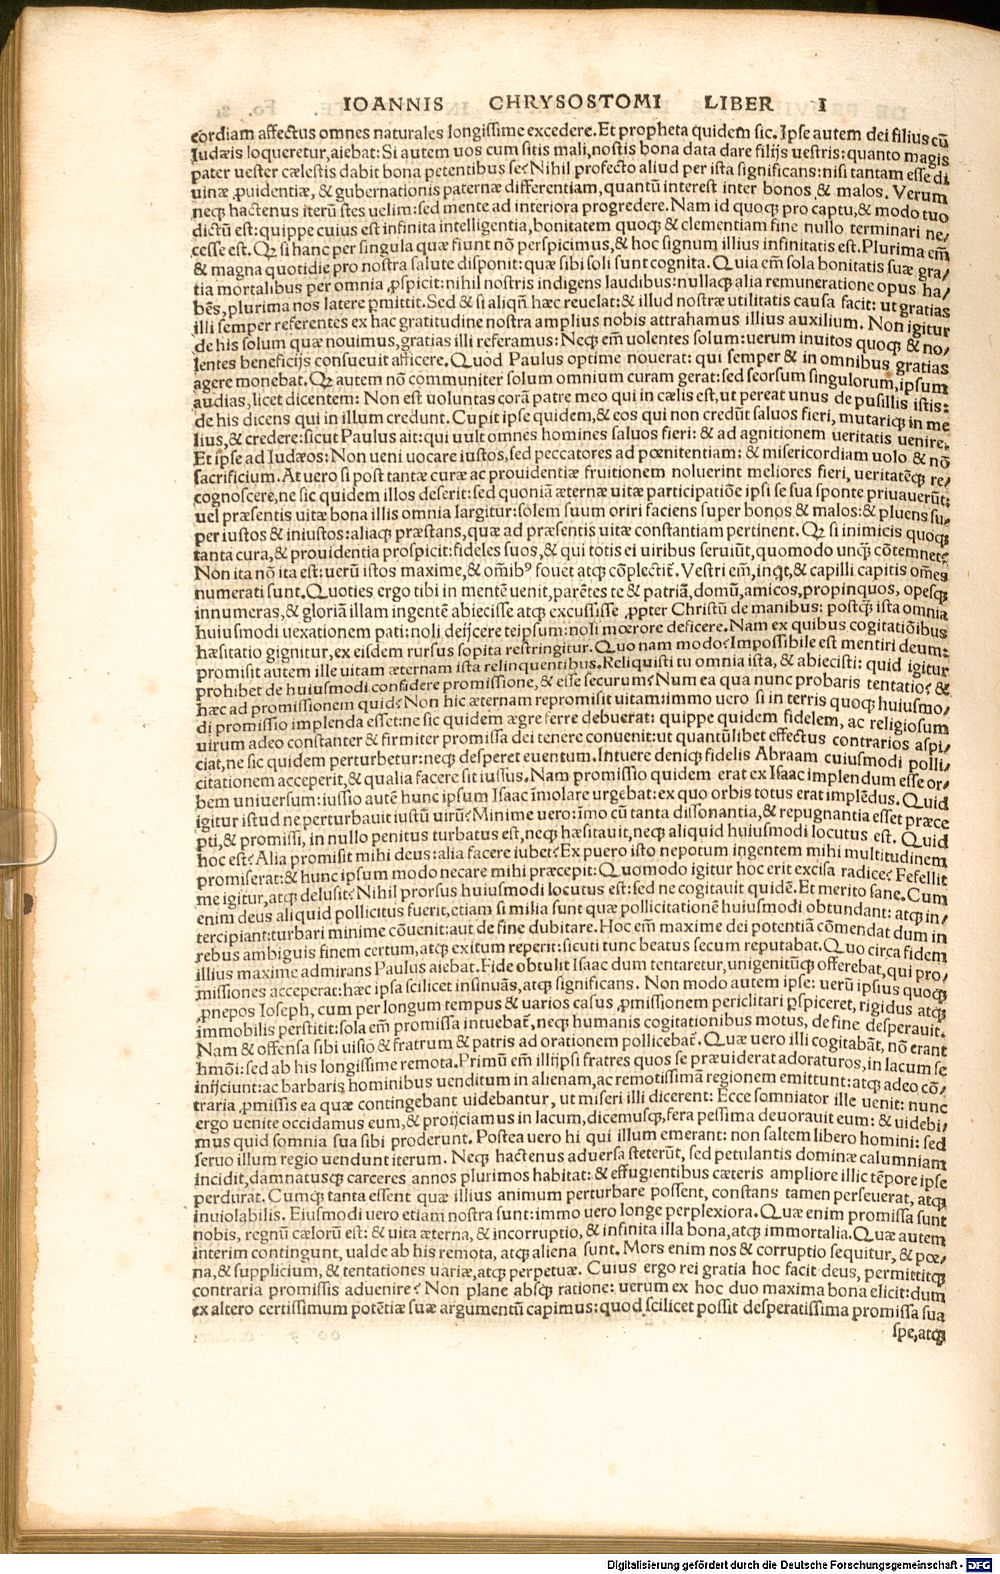 IOANNIS CHRYSOSTOMI LIBER I
cordiam affectus omnes naturales longissime excedere. Et propheta quidem sic. Ipse autem dei filius cũ
Iudæis loqueretur, aiebat: Si autem uos cum sitis mali, nostis bona data dare filijs uestris: quanto magis
pater uester cælestis dabit bona petentibus se? Nihil profecto aliud per ista significans: nisi tantam esse di
uinæ ꝓuidentiæ, & gubernationis paternæ differentiam, quantũ interest inter bonos & malos. Verum
neqꝫ hactenus iterũ stes uelim: sed mente ad interiora progredere. Nam id quoqꝫ pro captu, & modo tuo
dictũ est: quippe cuius est infinita intelligentia, bonitatem quoqꝫ & clementiam fine nullo terminari ne/
cesse est. Qꝫ si hanc per singula quæ fiunt nõ perspicimus, & hoc signum illius infinitatis est. Plurima em̃
& magna quotidie pro nostra salute disponit: quæ sibi soli sunt cognita. Quia em̃ sola bonitatis suæ gra/
tia mortalibus per omnia ꝓspicit: nihil nostris indigens laudibus: nullaqꝫ alia remuneratione opus ha/
bẽs, plurima nos latere ꝑmittit. Sed & si aliqñ hæc reuelat: & illud nostræ utilitatis causa facit: ut gratias
illi semper referentes ex hac gratitudine nostra amplius nobis attrahamus illius auxilium. Non igitur
de his solum quæ nouimus, gratias illi referamus: Neqꝫ em̃ uolentes solum: uerum inuitos quoqꝫ & no/
lentes beneficijs consueuit afficere. Quod Paulus optime nouerat: qui semper & in omnibus gratias
agere monebat. Qꝫ autem nõ communiter solum omnium curam gerat: sed seorsum singulorum, ipsum
audias, licet dicentem: Non est uoluntas corã patre meo qui in cælis est, ut pereat unus de pusillis istis:
de his dicens qui in illum credunt. Cupit ipse quidem, & eos qui non credũt saluos fieri, mutariqꝫ in me
lius, & credere: sicut Paulus ait: qui uult omnes homines saluos fieri: & ad agnitionem ueritatis uenire.
Et ipse ad Iudæos: Non ueni uocare iustos, sed peccatores ad pœnitentiam: & misericordiam uolo & nõ
sacrificium. At uero si post tantæ curæ ac prouidentiæ fruitionem noluerint meliores fieri, ueritatẽqꝫ re/
cognoscere, ne sic quidem illos deserit: sed quoniã æternæ uitæ participatiõe ipsi se sua sponte priuauerũt:
uel præsentis uitæ bona illis omnia largitur: solem suum oriri faciens super bonos & malos: & pluens su/
per iustos & iniustos: aliaqꝫ præstans, quæ ad præsentis uitæ constantiam pertinent. Qꝫ si inimicis quoqꝫ
tanta cura, & prouidentia prospicit: fideles suos, & qui totis ei uiribus seruiũt, quomodo unqꝫ̃ cõtemnet?
Non ita nõ ita est: uerũ istos maxime, & om̃ibꝰ fouet atqꝫ cõplectit̃. Vestri em̃, inqt, & capilli capitis om̃es
numerati sunt. Quoties ergo tibi in mentẽ uenit, parẽtes te & patriã, domũ, amicos, propinquos, opesqꝫ
innumeras, & gloriã illam ingentẽ abiecisse atqꝫ excussisse ꝓpter Christũ de manibus: postqꝫ̃ ista omnia
huiusmodi uexationem pati: noli deijcere teipsum: noli mœrore deficere. Nam ex quibus cogitatiõibus
hæsitatio gignitur, ex eisdem rursus sopita restringitur. Quo nam modo? Impossibile est mentiri deum:
promisit autem ille uitam æternam ista relinquentibus. Reliquisti tu omnia ista, & abiecisti: quid igitur
prohibet de huiusmodi confidere promissione, & esse securum? Num ea qua nunc probaris tentatio? &
hæc ad promissionem quid? Non hic æternam repromisit uitam: immo uero si in terris quoqꝫ huiusmo/
di promissio implenda esset: ne sic quidem ægre ferre debuerat: quippe quidem fidelem, ac religiosum
uirum adeo constanter & firmiter promissa dei tenere conuenit: ut quantũlibet effectus contrarios aspi/
ciat, ne sic quidem perturbetur: neqꝫ desperet euentum. Intuere deniqꝫ fidelis Abraam cuiusmodi polli/
citationem acceperit, & qualia facere sit iussus. Nam promissio quidem erat ex Isaac implendum esse or/
bem uniuersum: iussio autẽ hunc ipsum Isaac ĩmolare urgebat: ex quo orbis totus erat implẽdus. Quid
igitur istud ne perturbauit iustũ uirũ? Minime uero: ĩmo cũ tanta dissonantia, & repugnantia esset præce
pti, & promissi, in nullo penitus turbatus est, neqꝫ hæsitauit, neqꝫ aliquid huiusmodi locutus est. Quid
hoc est? Alia promisit mihi deus: alia facere iubet? Ex puero isto nepotum ingentem mihi multitudinem
promiserat: & hunc ipsum modo necare mihi præcepit: Quomodo igitur hoc erit excisa radice? Fefellit
me igitur, atqꝫ delusit? Nihil prorsus huiusmodi locutus est: sed ne cogitauit quidẽ. Et merito sane. Cum
enim deus aliquid pollicitus fuerit, etiam si milia sunt quæ pollicitationẽ huiusmodi obtundant: atqꝫ in/
tercipiant: turbari minime cõuenit: aut de fine dubitare. Hoc em̃ maxime dei potentiã cõmendat dum in
rebus ambiguis finem certum, atqꝫ exitum reperit: sicuti tunc beatus secum reputabat. Quo circa fidem
illius maxime admirans Paulus aiebat. Fide obtulit Isaac dum tentaretur, unigenitũqꝫ offerebat, qui pro/
missiones acceperat: hæc ipsa scilicet insinuãs, atqꝫ significans. Non modo autem ipse: uerũ ipsius quoqꝫ
ꝓnepos Ioseph, cum per longum tempus & uarios casus ꝓmissionem periclitari ꝑspiceret, rigidus atqꝫ
immobilis perstitit: sola em̃ promissa intuebat̃, neqꝫ humanis cogitationibus motus, de fine desperauit.
Nam & offensa sibi uisio & fratrum & patris ad orationem pollicebat̃. Quæ uero illi cogitabãt, nõ erant
hmõi: sed ab his longissime remota. Primũ em̃ illijpsi fratres quos se præuiderat adoraturos, in lacum se
inijciunt: ac barbaris hominibus uenditum in alienam, ac remotissimã regionem emittunt: atqꝫ adeo cõ/
traria ꝓmissis ea quæ contingebant uidebantur, ut miseri illi dicerent: Ecce somniator ille uenit: nunc
ergo uenite occidamus eum, & proijciamus in lacum, dicemusqꝫ, fera pessima deuorauit eum: & uidebi/
mus quid somnia sua sibi proderunt. Postea uero hi qui illum emerant: non saltem libero homini: sed
seruo illum regio uendunt iterum. Neqꝫ hactenus aduersa steterũt, sed petulantis dominæ calumniam
incidit, damnatusqꝫ carceres annos plurimos habitat: & effugientibus cæteris ampliore illic tẽpore ipse
perdurat. Cumqꝫ tanta essent quæ illius animum perturbare possent, constans tamen perseuerat, atqꝫ
inuiolabilis. Eiusmodi uero etiam nostra sunt: immo uero longe perplexiora. Quæ enim promissa sunt
nobis, regnũ cælorũ est: & uita æterna, & incorruptio, & infinita illa bona, atqꝫ immortalia. Quæ autem
interim contingunt, ualde ab his remota, atqꝫ aliena sunt. Mors enim nos & corruptio sequitur, & pœ/
na, & supplicium, & tentationes uariæ, atqꝫ perpetuæ. Cuius ergo rei gratia hoc facit deus, permittitqꝫ
contraria promissis aduenire? Non plane absqꝫ ratione: uerum ex hoc duo maxima bona elicit: dum
ex altero certissimum potẽtiæ suæ argumentũ capimus: quod scilicet possit desperatissima promissa sua
spe, atqꝫ
Digitalisierung gefördert durch die Deutsche Forschungsgemeinschaft - DFG